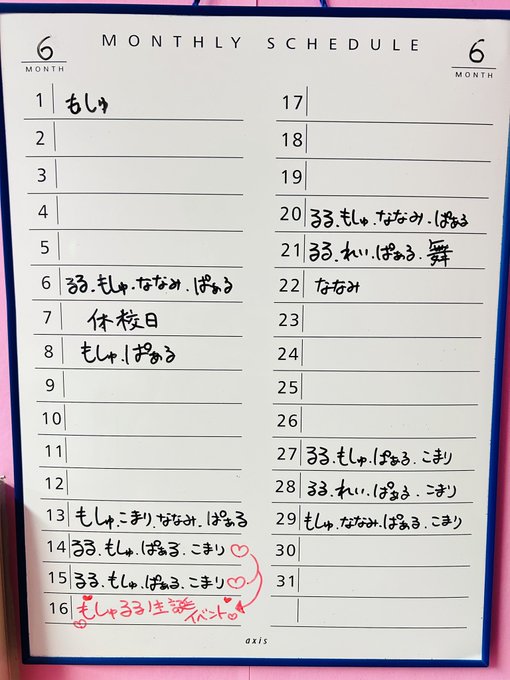 6
MONTH
MONTHLY SCHEDULE
6
MONTH
1 もしゅ
2
3
4
5
6 るる.もしゅ.ななみ.ぱぁる
7 休校日
8 もしゅ.ぱぁる
9
10
11
12
13 もしゅ.こまり.ななみ.ぱぁる
14 るる.もしゅ.ぱぁる.こまり♡
15 るる.もしゅ.ぱぁる.こまり♡
16 もしゅるる生誕イベント
17
18
19
20 るる.もしゅ.ななみ.ぱぁる
21 るる.れい.ぱぁる.舞
22 ななみ
23
24
25
26
27 るる.もしゅ.ぱぁる.こまり
28 るる.れい.ぱぁる.こまり
29 もしゅ.ななみ.ぱぁる.こまり
30
31
axis